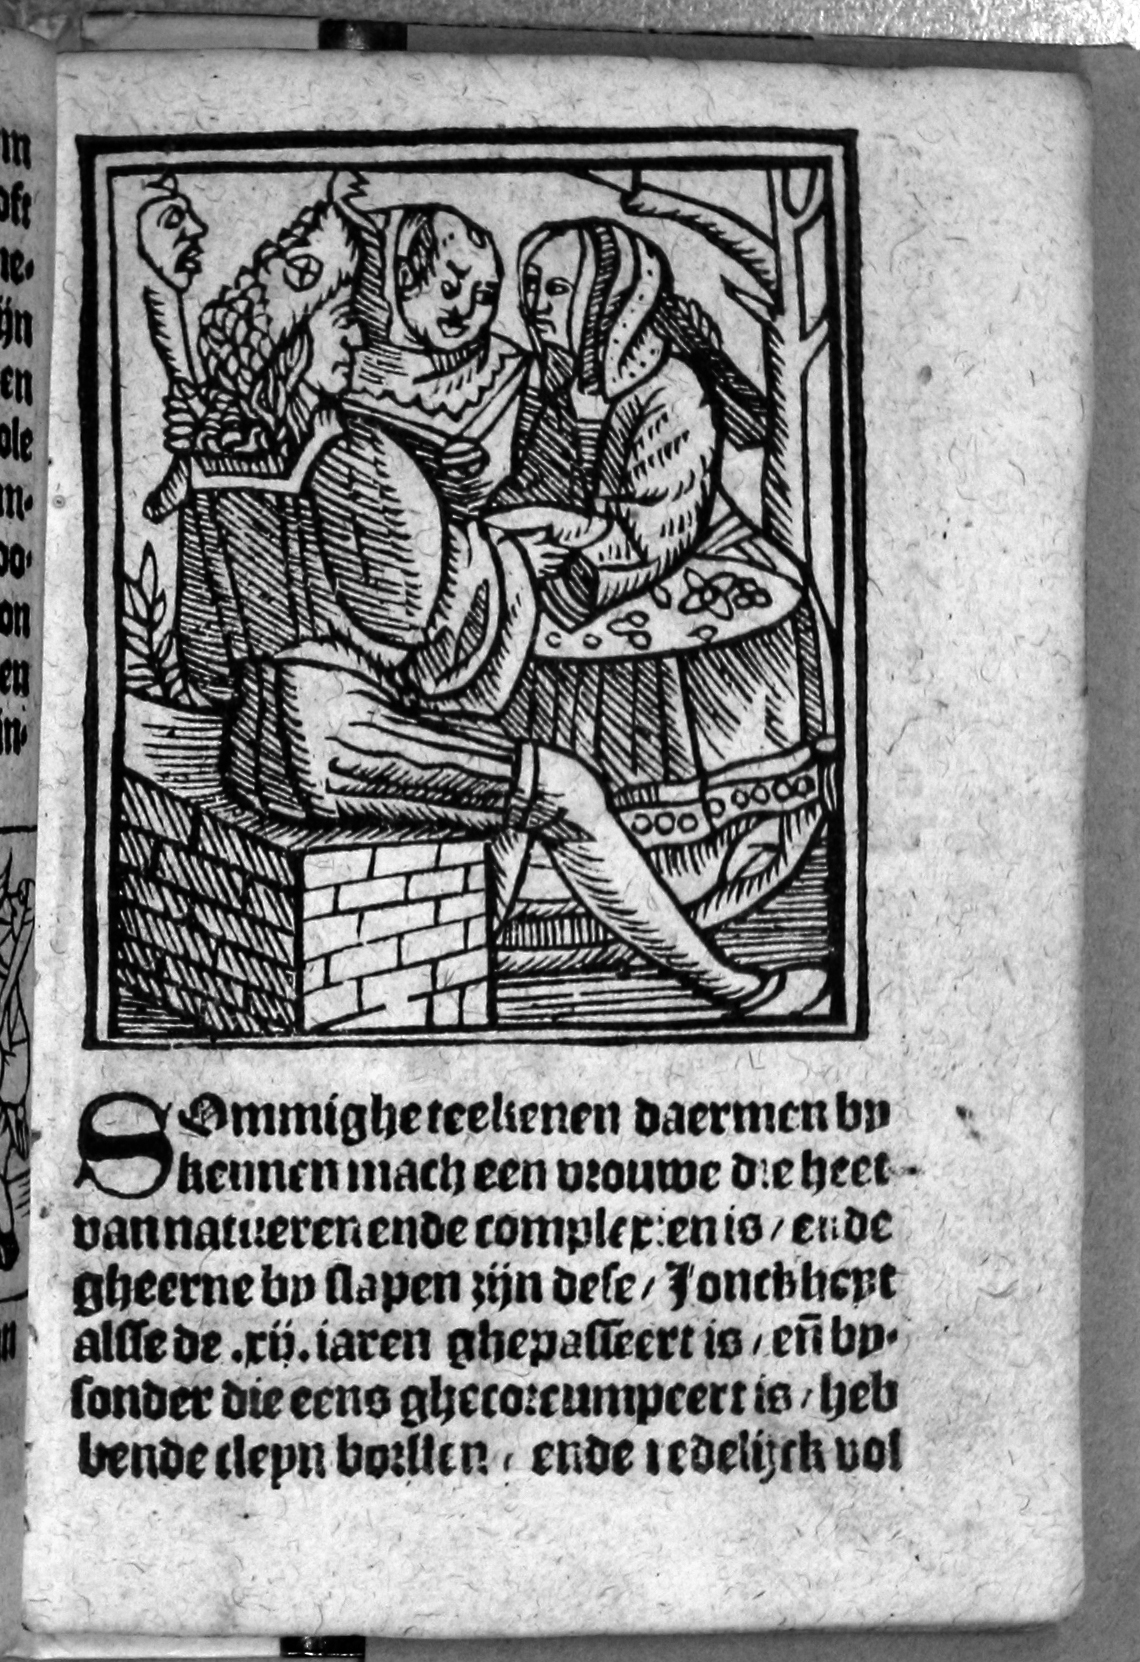 m
oft
ne.
ijn
en
ole
m.
oo.
on
en
in.
SOmmighe teekenen daermen by
kennen mach een vrouwe die heet
van natueren ende complexien is / ende
gheerne by slapen zijn dese / Jonckheyt
alsse de .xij. iaren ghepasseert is / eñ by-
sonder die eens ghecorrumpeert is / heb
bende cleyn borsten / ende redelijck vol